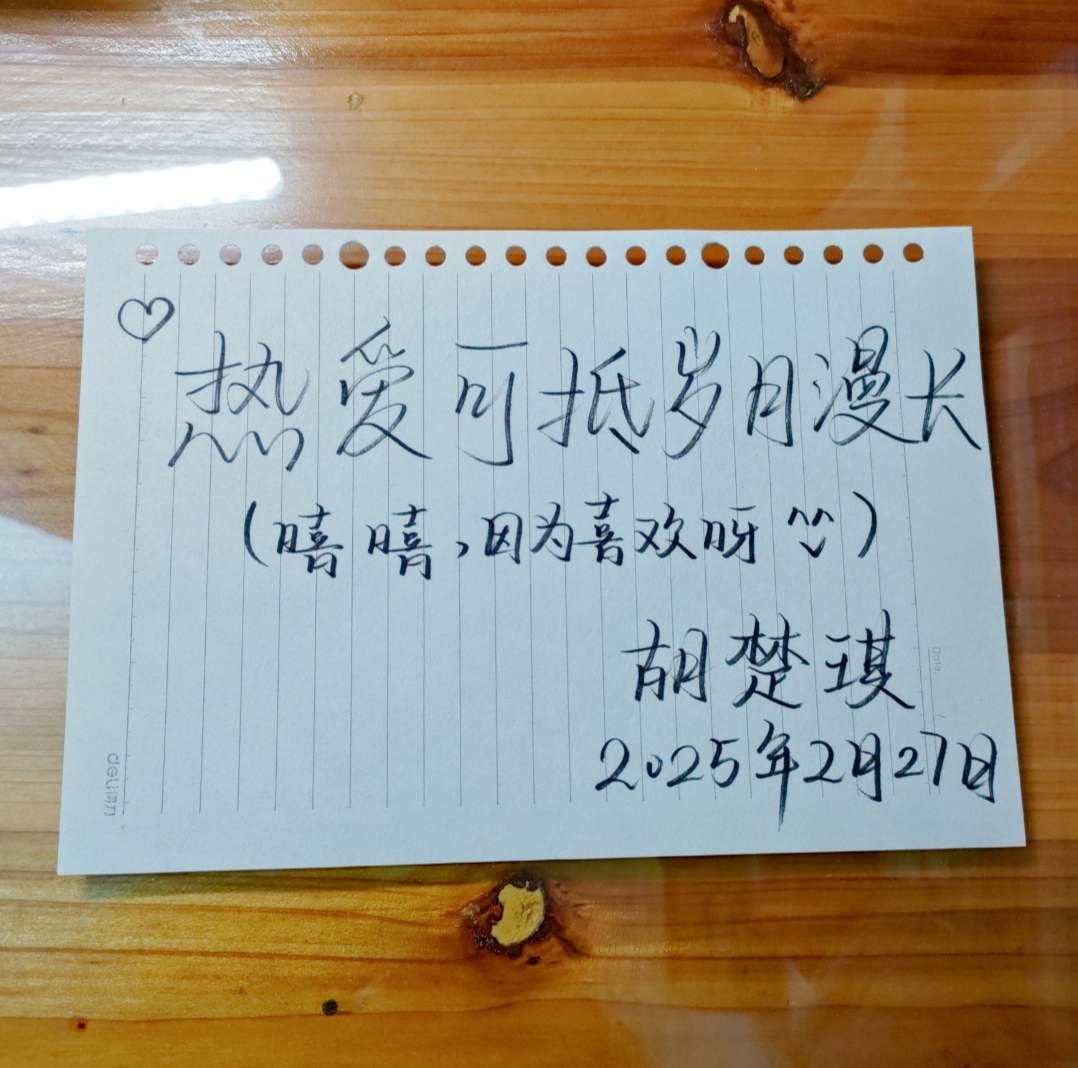 热爱可抵岁月漫长
(嘻嘻,因为喜欢呀 ^^)
胡楚琪
2025年2月27日
Date.
deli得力